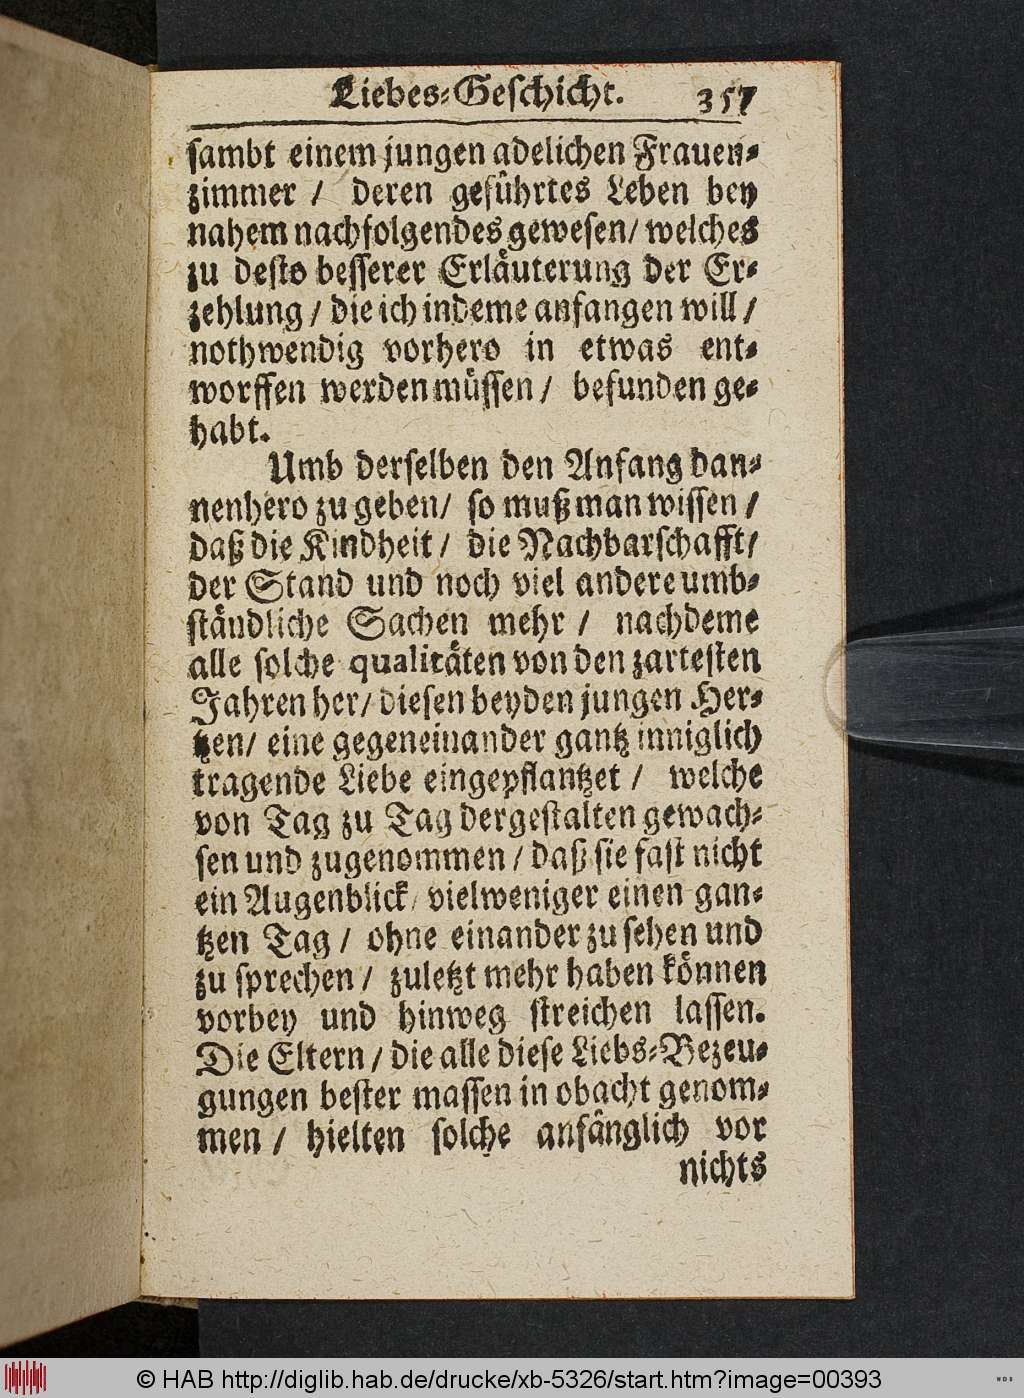 Liebes-Geschicht. 357
sambt einem jungen adelichen Frauen-
zimmer / deren geführtes Leben bey
nahem nachfolgendes gewesen / welches
zu desto besserer Erläuterung der Er-
zehlung / die ich indeme anfangen will /
nothwendig vorhero in etwas ent-
worffen werden müssen / befunden ge-
habt.
Umb derselben den Anfang dan-
nenhero zu geben / so muß man wissen /
daß die Kindheit / die Nachbarschafft /
der Stand und noch viel andere umb-
ständliche Sachen mehr / nachdeme
alle solche qualitäten von den zartesten
Jahren her / diesen beyden jungen Her-
tzen / eine gegeneinander gantz inniglich
tragende Liebe eingepflantzet / welche
von Tag zu Tag dergestalten gewach-
sen und zugenommen / daß sie fast nicht
ein Augenblick / vielweniger einen gan-
tzen Tag / ohne einander zu sehen und
zu sprechen / zuletzt mehr haben können
vorbey und hinweg streichen lassen.
Die Eltern / die alle diese Liebs-Bezeu-
gungen bester massen in obacht genom-
men / hielten solche anfänglich vor
nichts
© HAB http://diglib.hab.de/drucke/xb-5326/start.htm?image=00393